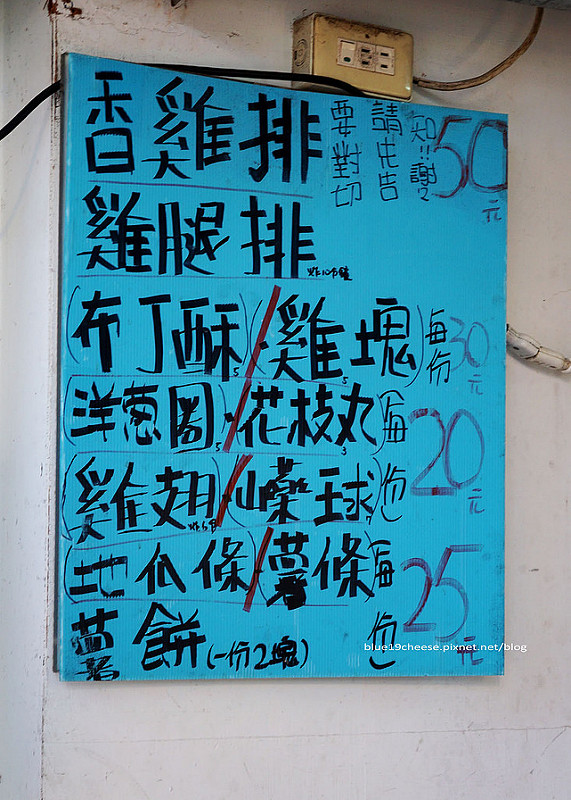 香雞排 要對切 請先告 知!!謝謝 50元
雞腿排 炸10分鐘
(布丁酥5/雞塊5)每份 30元
(洋蔥圈5/花枝丸3)每份 20元
(雞翅/嶸球)
(地瓜條/薯條)每份 25元
薯餅(一份2塊)
blue19cheese.pixnet.net/blog